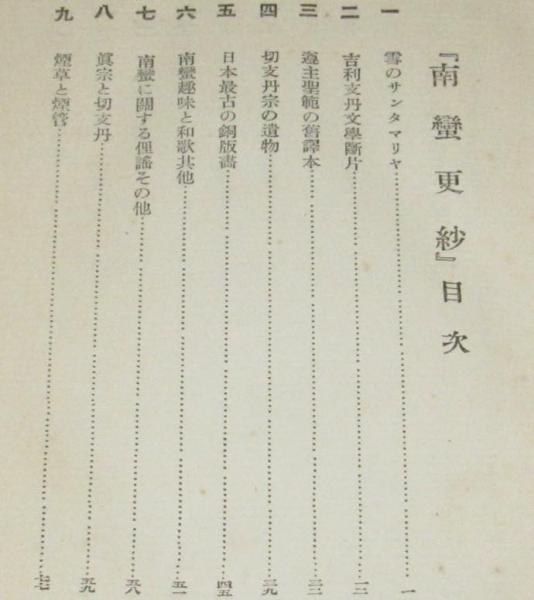 『南蠻更紗』目次
一 雪のサンタマリヤ 一
二 吉利支丹文學斷片 一二
三 遵主聖範の舊譯本 二二
四 切支丹宗の遺物 三九
五 日本最古の銅版畵 四五
六 南蠻趣味と和歌其他 五一
七 南蠻に關する俚謠その他 五六
八 眞宗と切支丹 五九
九 煙草と煙管